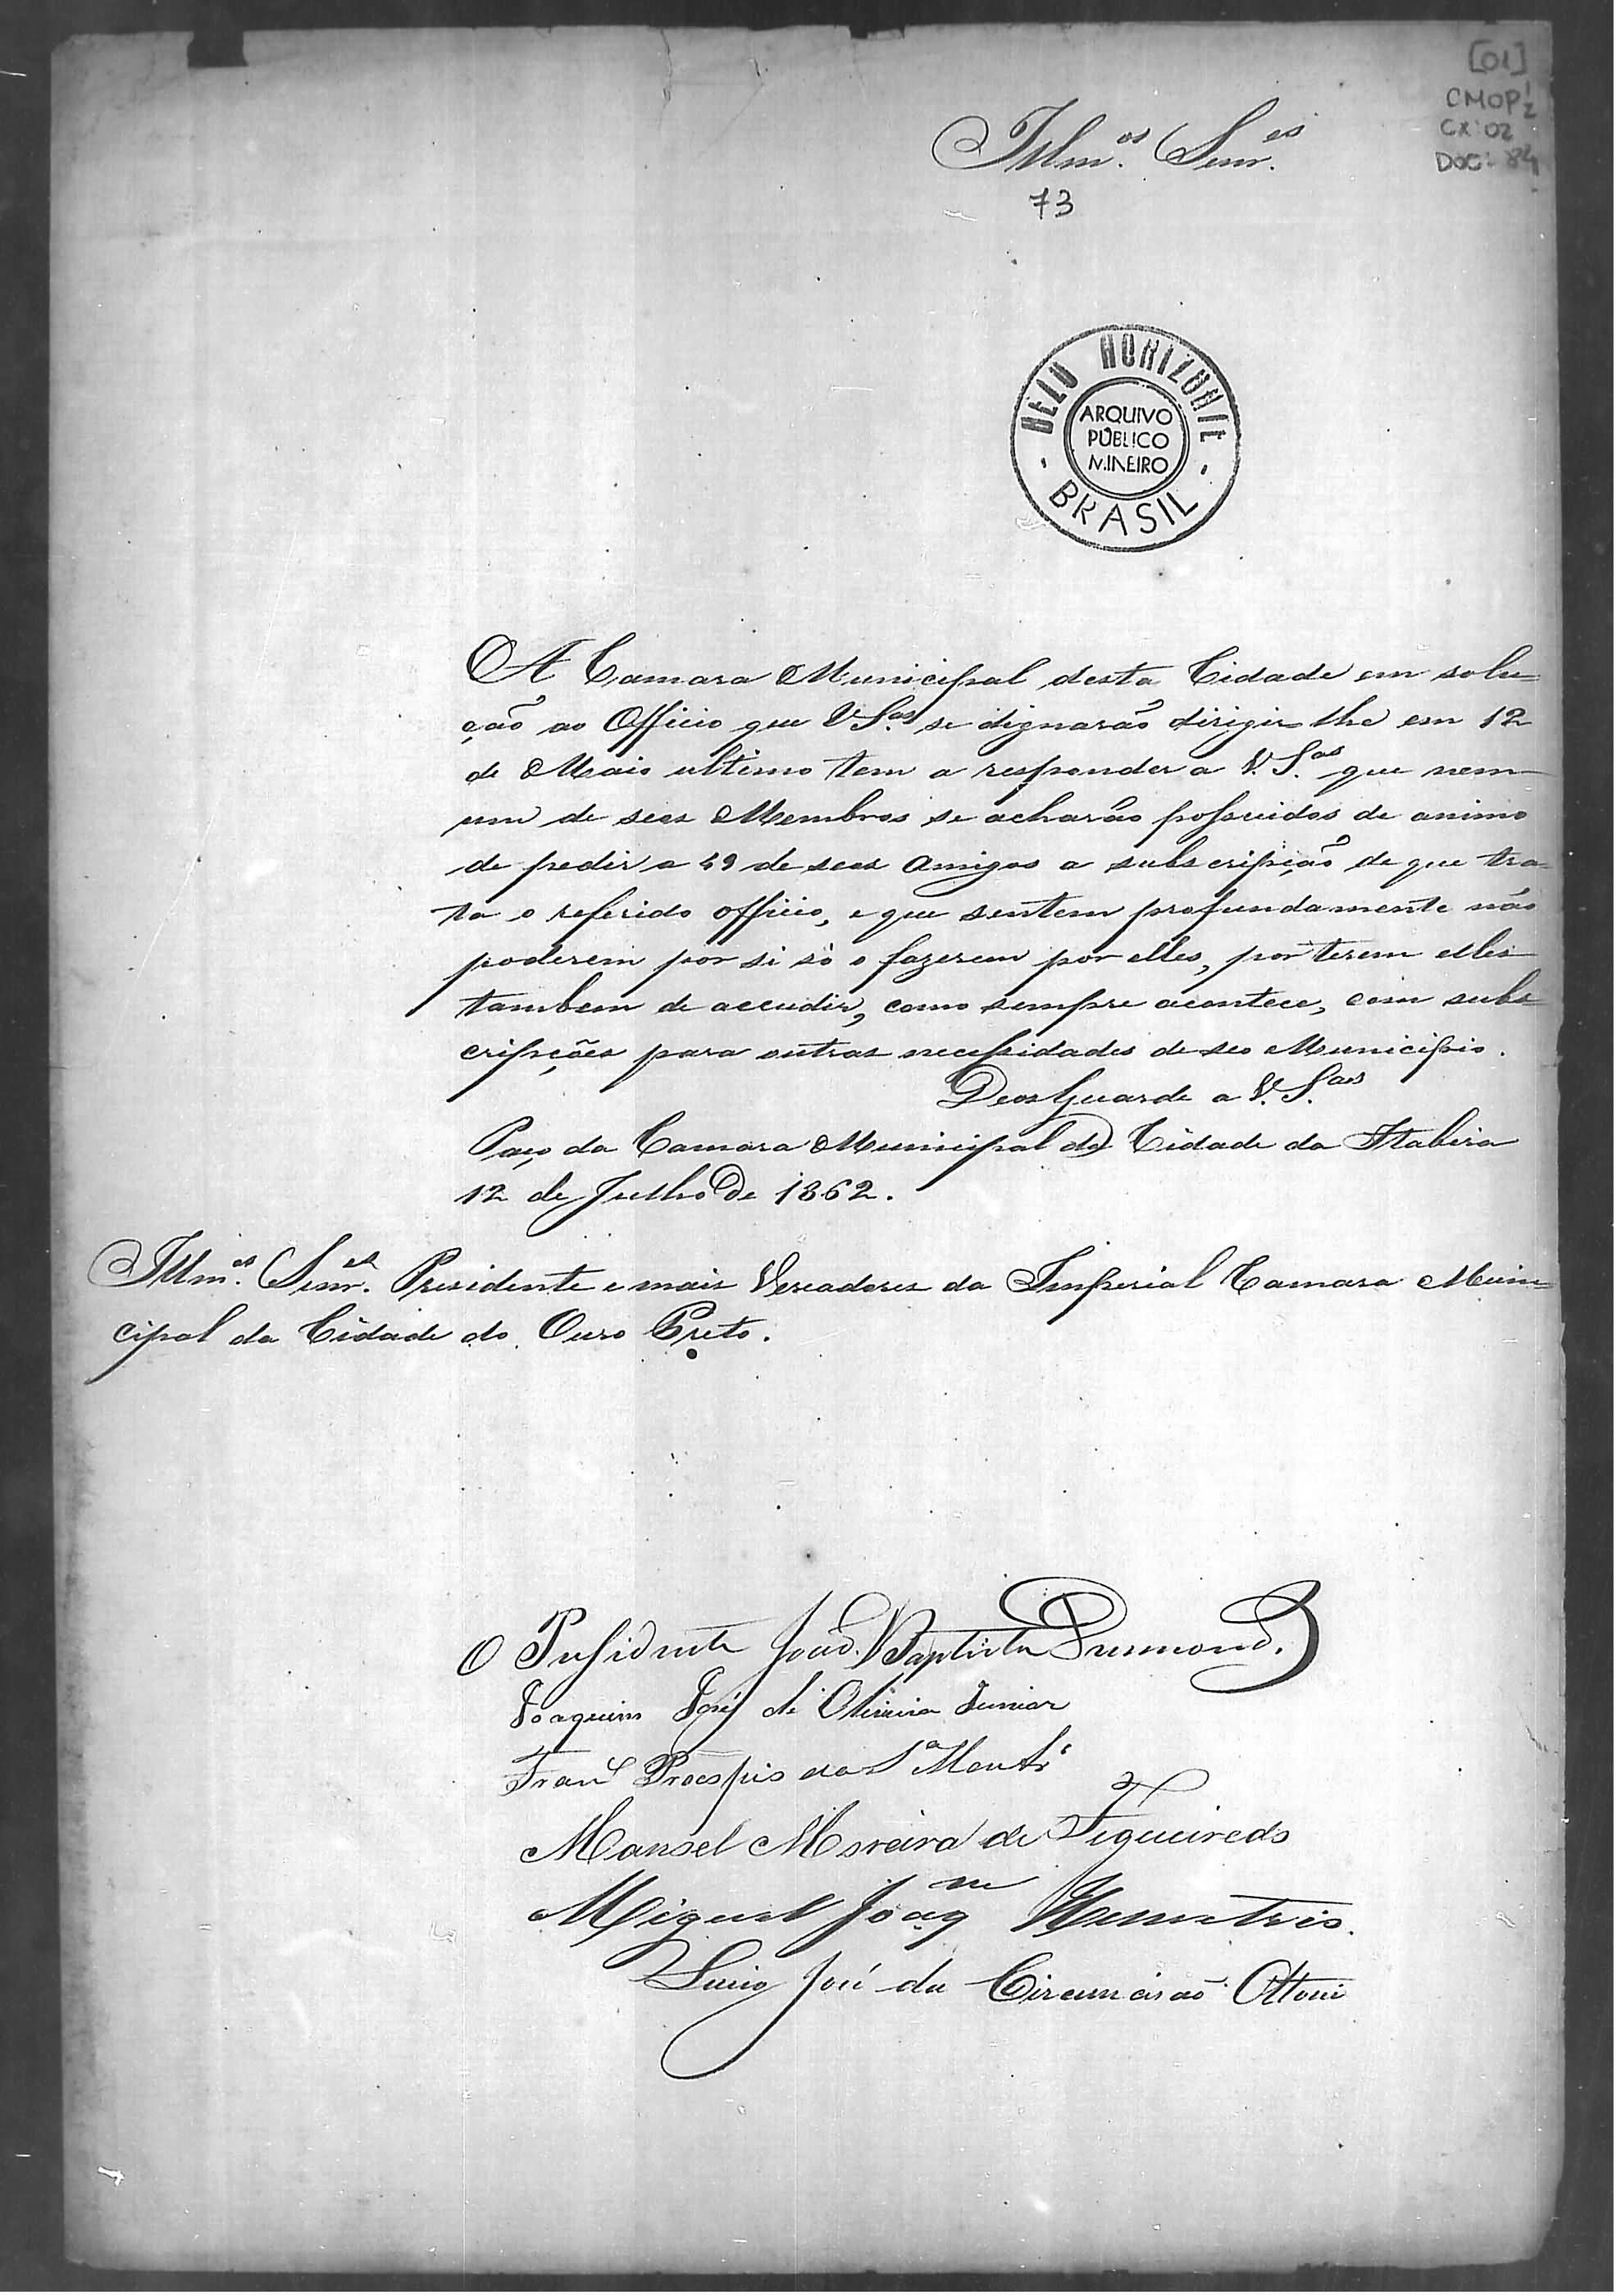 [01]
CMOP 1/2
CX: 02
DOC: 84
Illm.os Senr.es
73
BELO HORIZONTE
ARQUIVO
PÚBLICO
MINEIRO
BRASIL
A Camara Municipal desta Cidade em solu=
ção ao Officio que VS.as se dignarão dirigir-lhe em 12
de Maio ultimo tem a responder a V.S.as que nem
um de seos Membros se acharão possuidos de animo
de pedir a 49 de seos amigos a subscripção de que tra-
ta o referido officio, e que sentem profundamente não
poderem por si só o fazerem por elles, por terem elles
tambem de accudir, como sempre acontece, com subs=
cripções para outras necessidades de seo Municipio.
Deos Guarde a V.S.as
Paço da Camara Municipal da Cidade da Itabira
12 de Julho de 1862.
Illm.os Senr.es Presidente e mais Vereadores da Imperial Camara Muni=
cipal da Cidade do Ouro Preto.
O Presidente João Baptista Drumond.
Joaquim José de Oliveira Junior
Fran.co Procopio da S.a Montr.o
Manoel Moreira de Figueiredo
Miguel Joaq.m
Lucio José da Circumcisão Ottoni